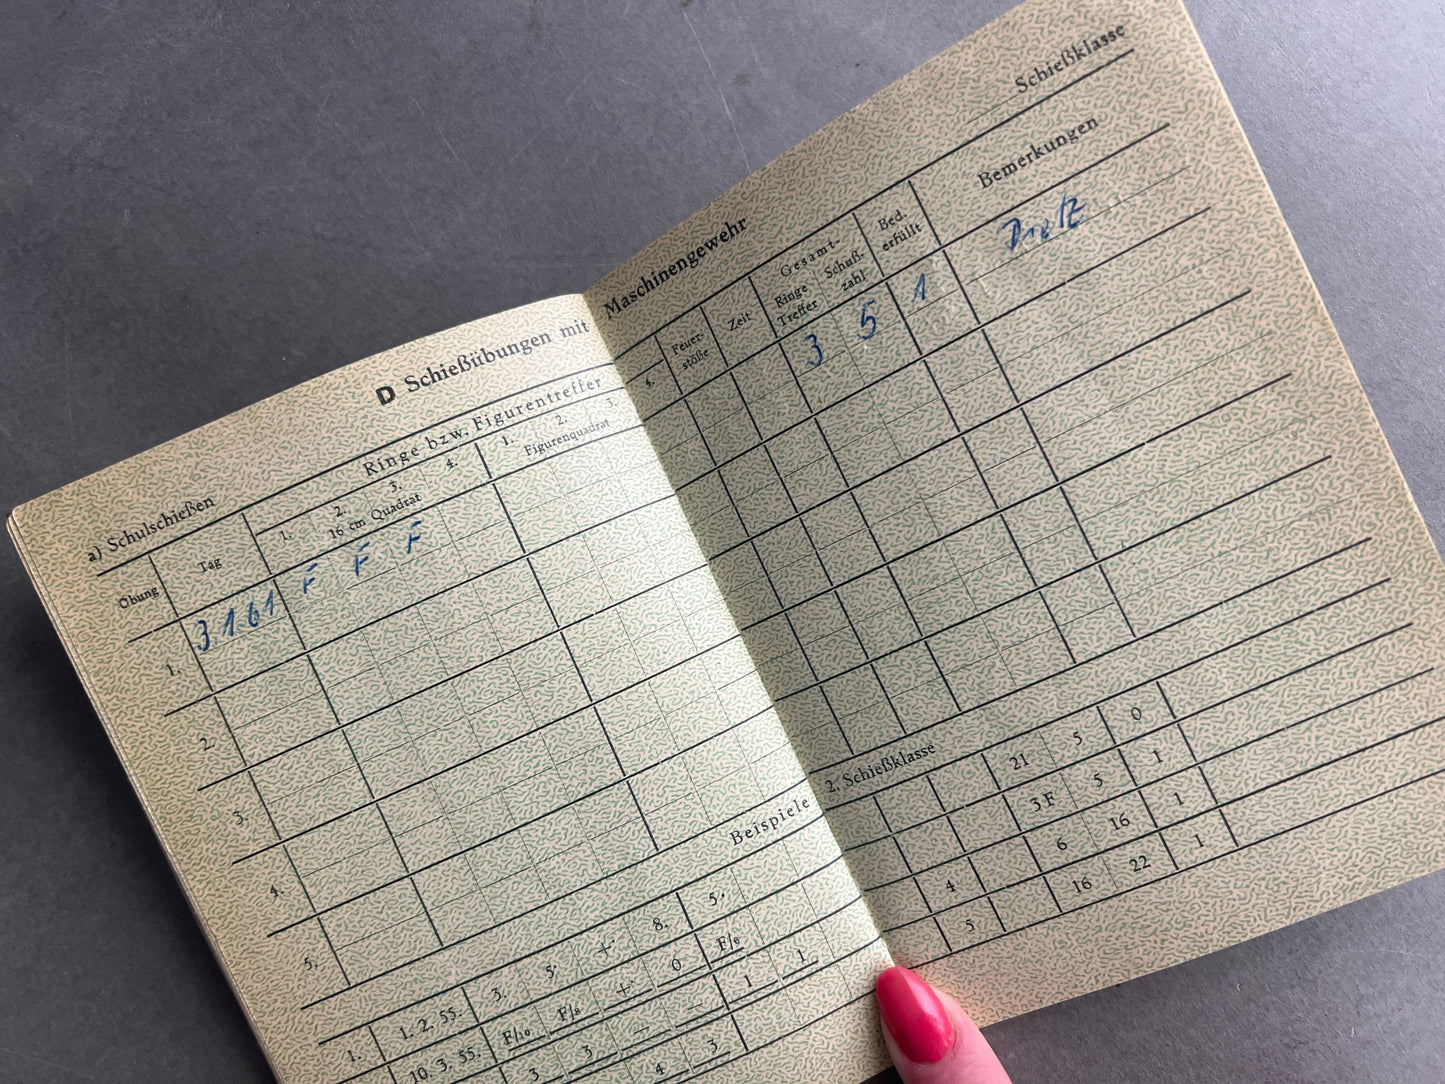 D Schießübungen mit Maschinengewehr
a) Schulschießen
Schießklasse
Übung
Tag
Ringe bzw. Figurentreffer
1. 2. 3. 4.
16 cm Quadrat
1. 2. 3. 4.
Figurenquadrat
Feuer-
stöße
Zeit
Gesamt-
Ringe
Treffer
Schuß-
zahl
Bed.
erfüllt
Bemerkungen
1. 3.1.61 F F F 3 5 1
2.
3.
4.
5.
Beispiele 2. Schießklasse
1. 1. 2. 55. 3. 5. +· 8. 5· 21 5 0
10. 3. 55. F/10 F/8 +· 0 F/8 3 F 5 1
3 3 — — 1 1 4 6 16 1
4 3 5 16 22 1